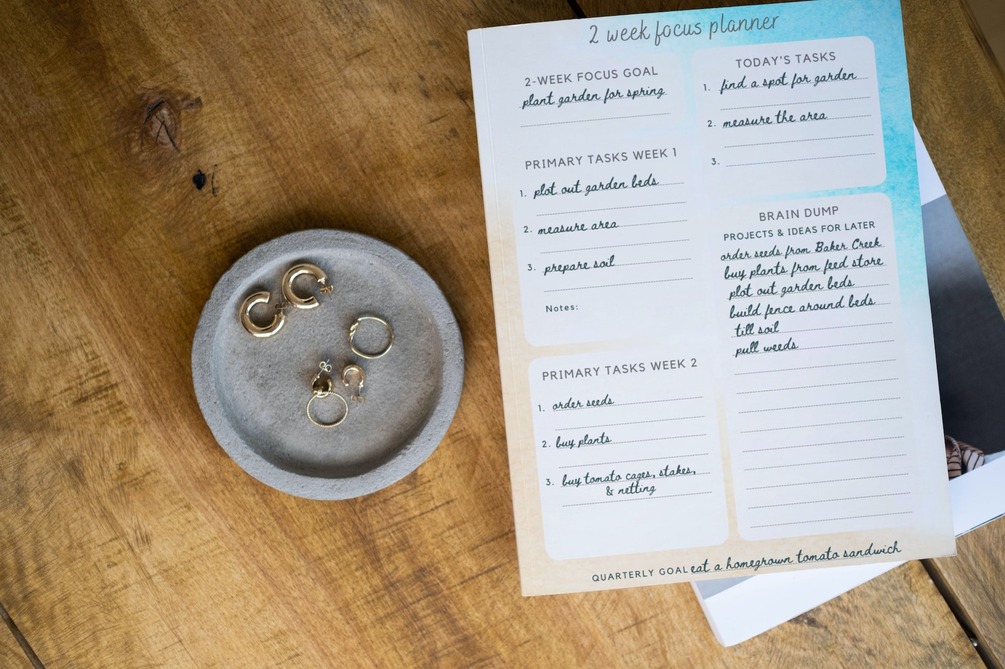 2 week focus planner
2-WEEK FOCUS GOAL
plant garden for spring
PRIMARY TASKS WEEK 1
1. plot out garden beds
2. measure area
3. prepare soil
Notes:
PRIMARY TASKS WEEK 2
1. order seeds
2. buy plants
3. buy tomato cages, stakes,
& netting
TODAY'S TASKS
1. find a spot for garden
2. measure the area
3.
BRAIN DUMP
PROJECTS & IDEAS FOR LATER
order seeds from Baker Creek
buy plants from feed store
plot out garden beds
build fence around beds
till soil
pull weeds
QUARTERLY GOAL eat a homegrown tomato sandwich